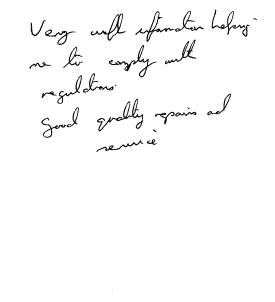 Very useful information helping
me to comply with
regulations.
Good quality repairs and
service